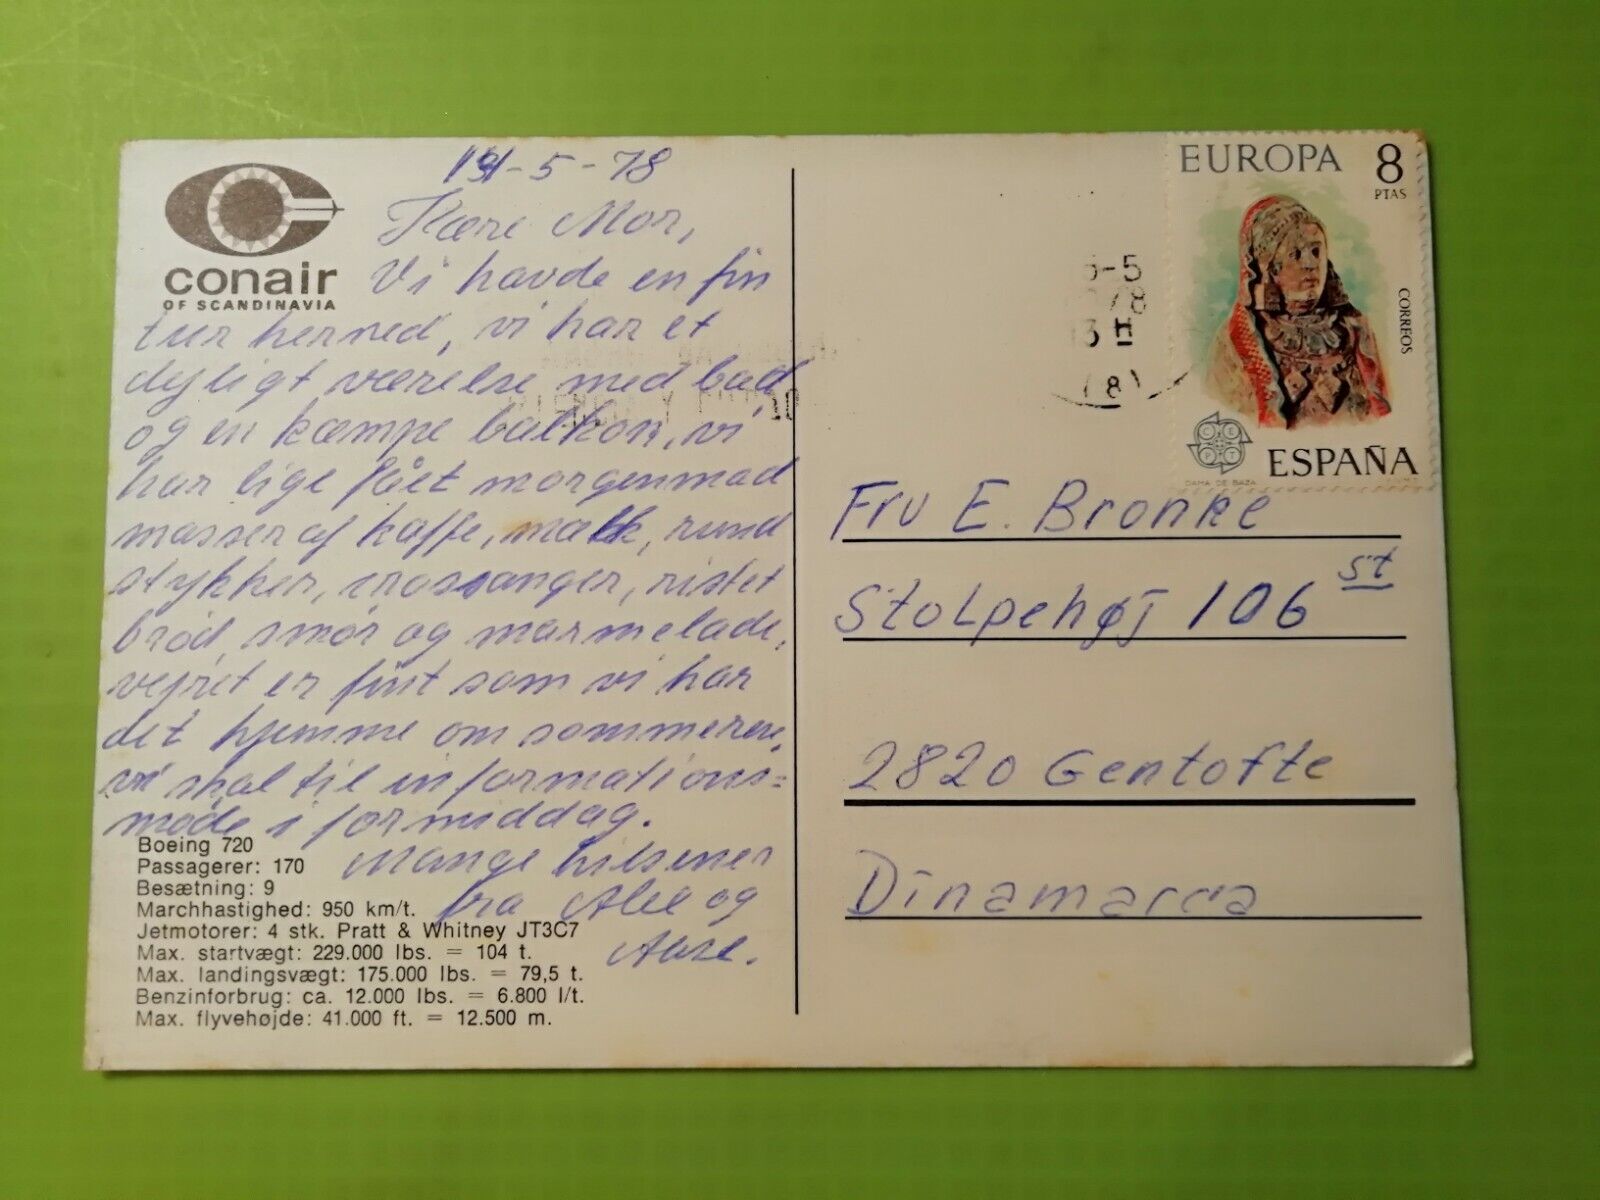 conair
OF SCANDINAVIA
-5-78
Kære Mor,
Vi havde en fin
tur herned, vi har et
dejligt værelse med bad
og en kæmpe balkon, vi
har lige fået morgenmad
masser af kaffe, mælk, rund
stykker, crossanger, ristet
brød, smør og marmelade,
vejret er fint som vi har
det hjemme om sommeren,
vi skal til informations=
møde i formiddag.
Mange hilsener
fra og
Boeing 720
Passagerer: 170
Besætning: 9
Marchhastighed: 950 km/t.
Jetmotorer: 4 stk. Pratt & Whitney JT3C7
Max. startvægt: 229.000 lbs. = 104 t.
Max. landingsvægt: 175.000 lbs. = 79,5 t.
Benzinforbrug: ca. 12.000 lbs. = 6.800 l/t.
Max. flyvehøjde: 41.000 ft. = 12.500 m.
EUROPA 8
PTAS
CORREOS
CEPT
ESPAÑA
DAMA DE BAZA
5-5
13 H
(8)
Fru E. Bronke
Stolpehøj 106 st
2820 Gentofte
Dinamarca